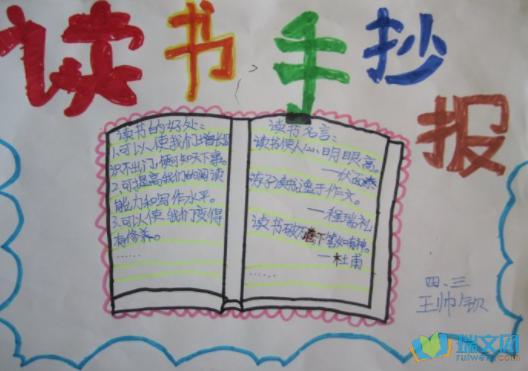 读书手抄报
读书的好处:
1.可以使我们增长知
识不出门,便可知天下事。
2.可提高我们的阅读
能力和写作水平。
3.可以使我们变得
有修养。
……
读书名言:
读书使人心明眼亮。
好子读书,速于作文。
—程瑞礼
读书破万卷下笔如有神。
—杜甫
……
四、三
王帅
瑞文网
ruiwen.com